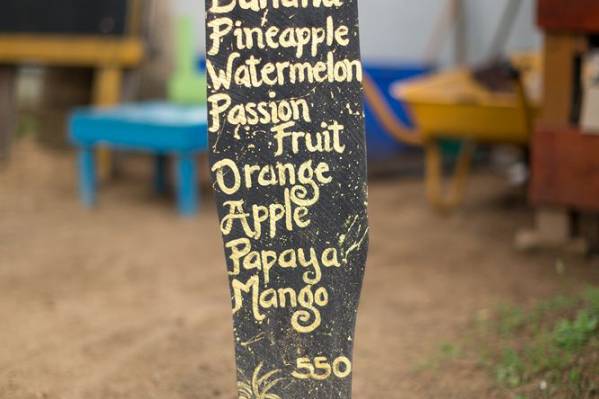 Banana
Pineapple
Watermelon
Passion
Fruit
Orange
Apple
Papaya
Mango
550